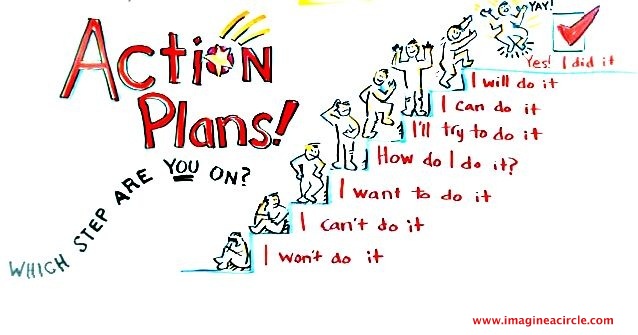 Action
Plans!
WHICH STEP ARE YOU ON?
YAY!
Yes! I did it
I will do it
I can do it
I'll try to do it
How do I do it?
I want to do it
I can't do it
I won't do it
www.imagineacircle.com